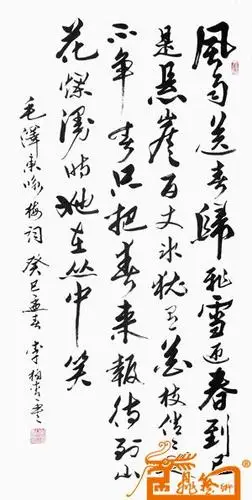 風雨送春歸飛雪迎春到已
是懸崖百丈冰猶有花枝俏俏也
不爭春只把春來報待到山
花爛漫時她在丛中笑
毛澤東咏梅詞癸巳孟春李柏青書